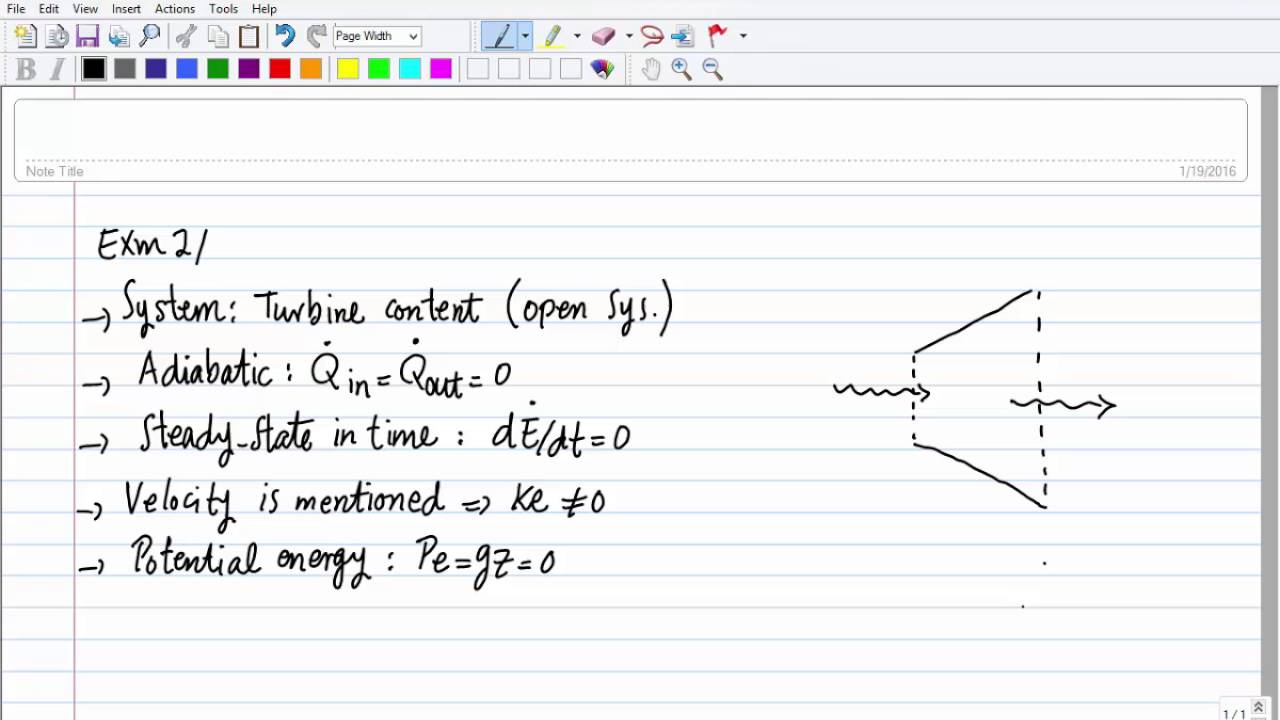 File Edit View Insert Actions Tools Help
Page Width
B I
Note Title
1/19/2016
Exm 2/
→ System: Turbine content (open Sys.)
→ Adiabatic : Q̇in = Q̇out = 0
→ Steady-State in time : dĖ/dt = 0
→ Velocity is mentioned ⇒ Ke ≠ 0
→ Potential energy : Pe = gz = 0
1/1